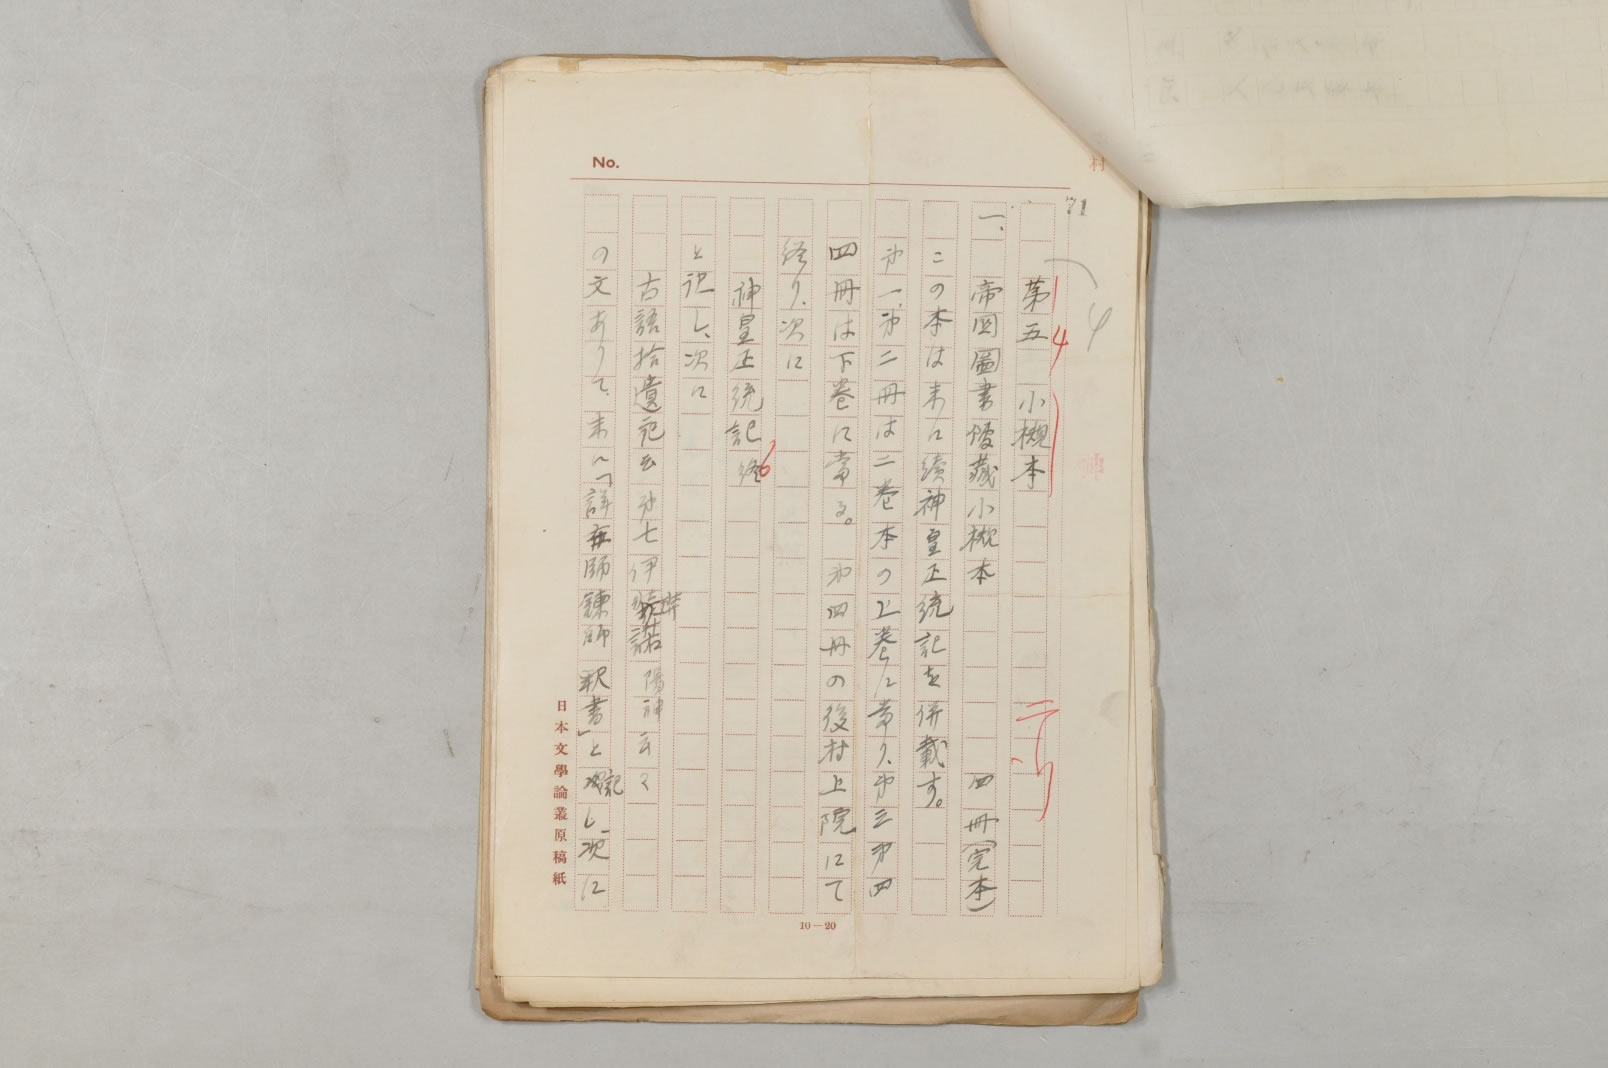 No.
村
71
4
4
第五 小槻本
一、帝国圖書館蔵小槻本 四冊(完本)
この本は末に續神皇正統記を併載す。
オ一、オ二冊は二巻本の上巻に當り、オ三オ四
四冊は下巻に當る。オ四冊の後村上院にて
終り、次に
神皇正統記 終
と記し、次に
古語拾遺 云 オ七伊弉諾 陽神 云々
の文ありて、末に「詳在師錬師釈書」と記し、次に
日本文學論叢原稿紙
10—20